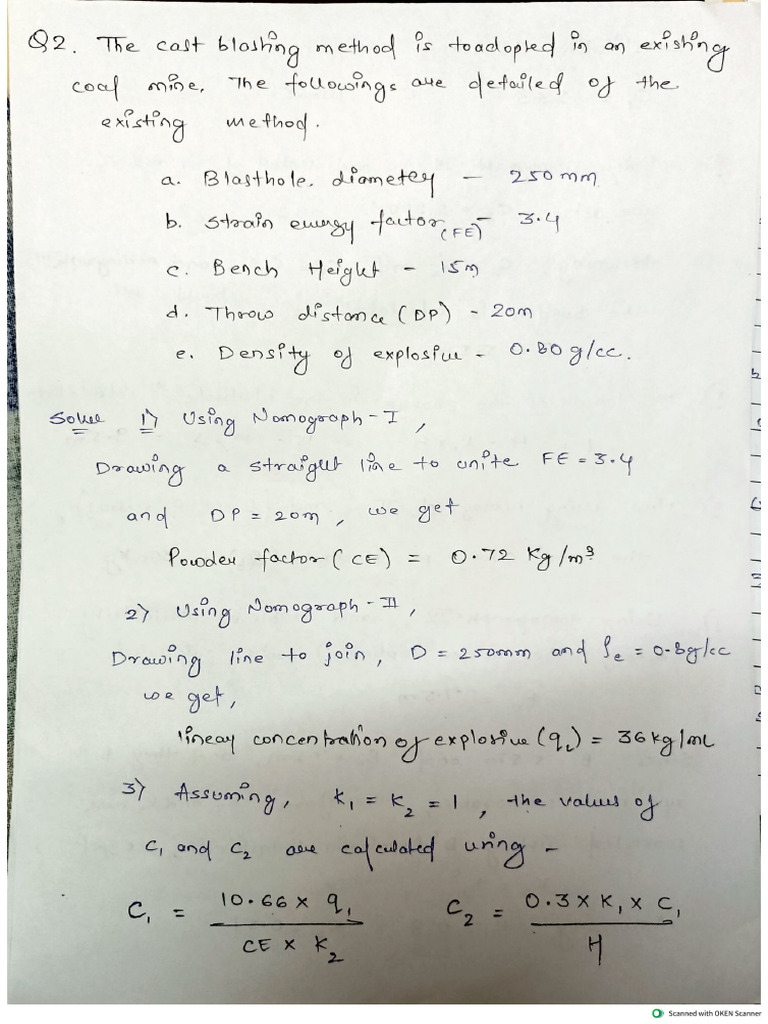 Q2. The cast blasting method is toadopted in an existing
coal mine. The followings are detailed of the
existing method.
a. Blasthole. diameter - 250 mm
b. Strain energy factor (FE) - 3.4
c. Bench Height - 15m
d. Throw distance (DP) - 20m
e. Density of explosive - 0.80 g/cc.
Solve 1) Using Nomograph - I,
Drawing a straight line to unite FE = 3.4
and DP = 20m, we get
Powder factor (CE) = 0.72 Kg/m³
2) Using Nomograph - II,
Drawing line to join, D = 250mm and ρe = 0.8g/cc
we get,
linear concentration of explosive (qL) = 36kg/mL
3) Assuming, K₁ = K₂ = 1, the values of
C₁ and C₂ are calculated using -
C₁ = 10.66 x q₁ / CE x K₂ C₂ = 0.3 x K₁ x C₁ / H
Scanned with OKEN Scanner